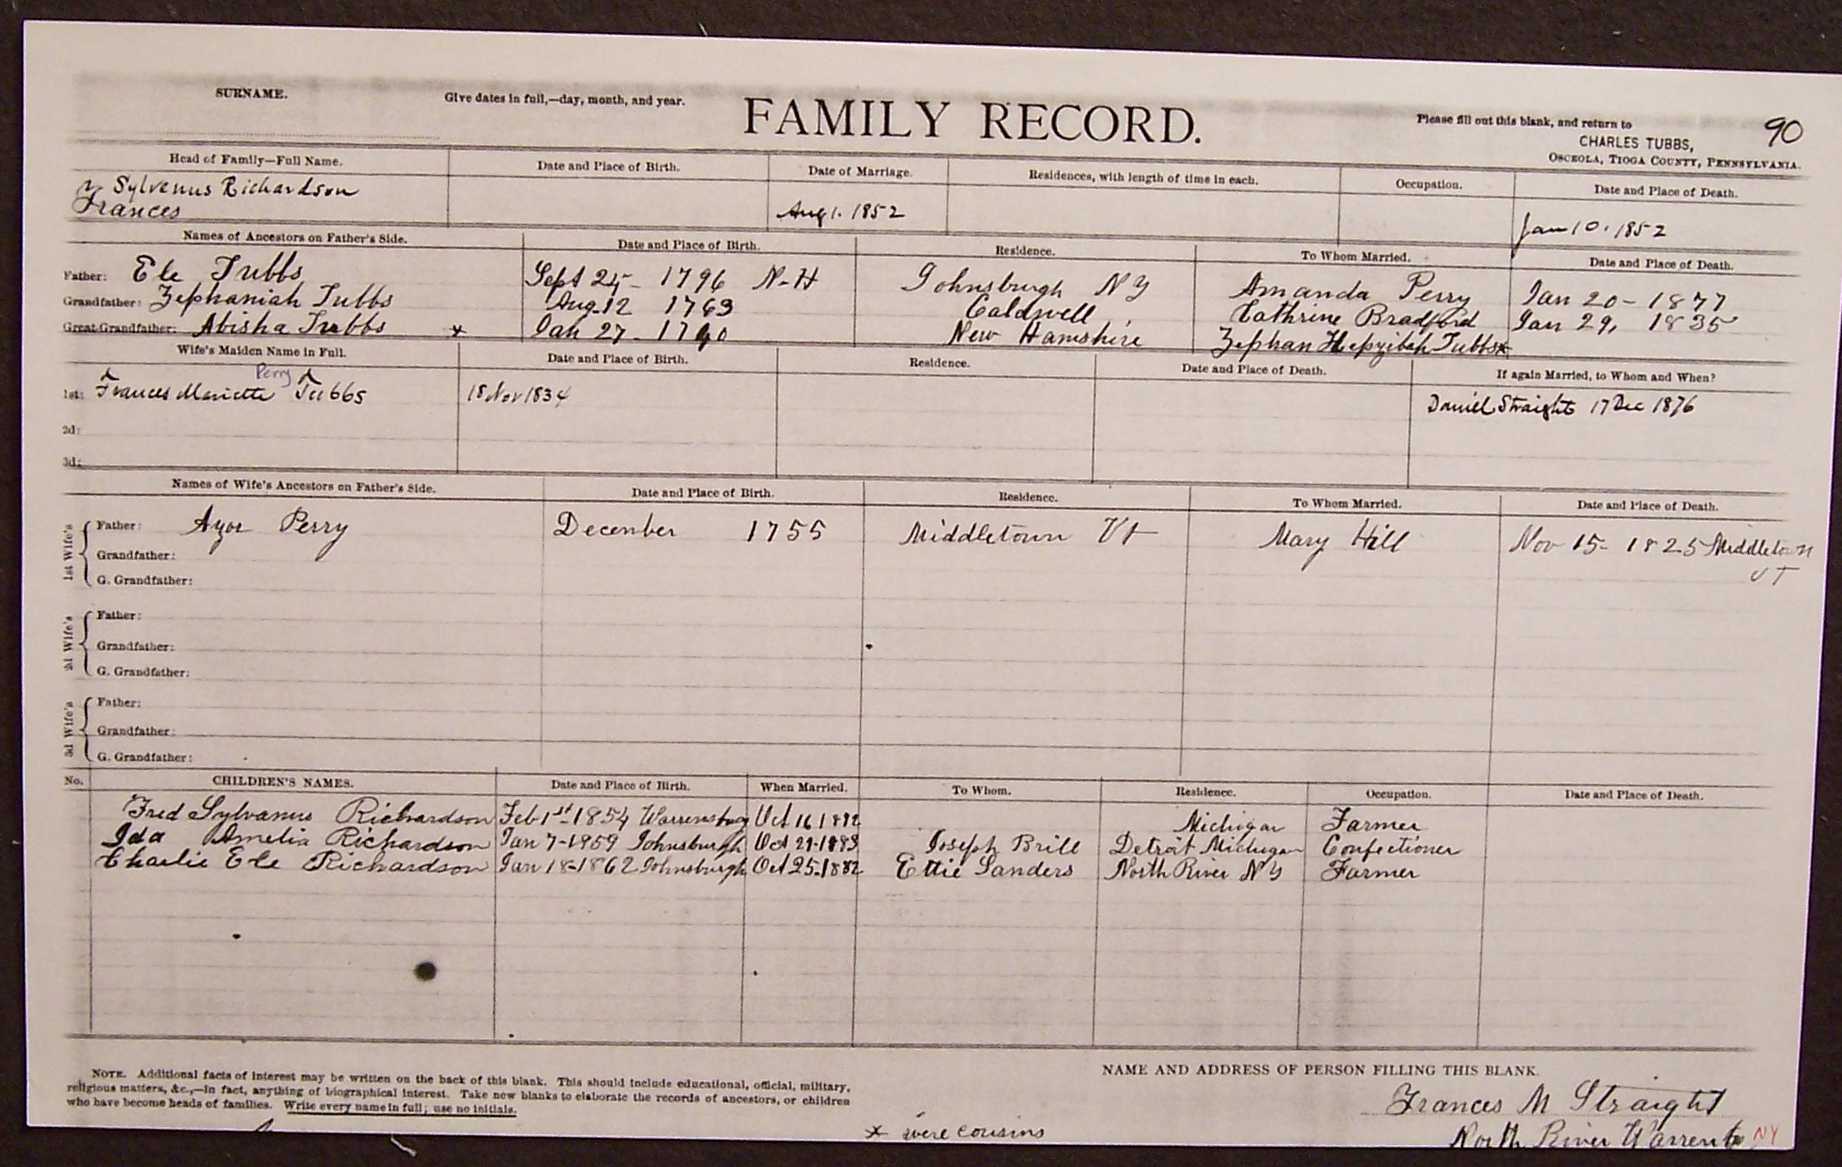 SURNAME. Give dates in full,—day, month, and year. FAMILY RECORD. Please fill out this blank, and return to 90
CHARLES TUBBS,
OSCEOLA, TIOGA COUNTY, PENNSYLVANIA.
Head of Family—Full Name. Date and Place of Birth. Date of Marriage. Residences, with length of time in each. Occupation. Date and Place of Death.
Sylvenus Richardson
Frances Aug 1. 1852 Jan 10. 1852
Names of Ancestors on Father's Side. Date and Place of Birth. Residence. To Whom Married. Date and Place of Death.
Father: Ele Tubbs Sept 25- 1796 N-H Johnsburgh NY Amanda Perry Jan 20- 1877
Grandfather: Zephaniah Tubbs Aug. 12 1763 Caldwell Cathrine Bradford Jan 29, 1835
Great Grandfather: Abisha Tubbs * Jan 27- New Hamshire Zephan Hepzibah Tubbs*
Wife's Maiden Name in Full. Date and Place of Birth. Residence. Date and Place of Death. If again Married, to Whom and When?
Perry
1st: Frances Mariette Tubbs 18 Nov 1834 Daniel Straight 17 Dec 1876
2d:
3d:
Names of Wife's Ancestors on Father's Side. Date and Place of Birth. Residence. To Whom Married. Date and Place of Death.
1st Wife's Father: Azor Perry December 1755 Middletown Vt Mary Hill Nov 15- 1825 Middletown
VT
Grandfather:
G. Grandfather:
2d Wife's Father:
Grandfather:
G. Grandfather:
3d Wife's Father:
Grandfather:
G. Grandfather:
No. CHILDREN'S NAMES. Date and Place of Birth. When Married. To Whom. Residence. Occupation. Date and Place of Death.
Fred Sylvanus Richardson Feb 1st 1854 Warrensburg Oct 16 Michigan Farmer
Ida Amelia Richardson Jan 7-1959 Johnsburgh Oct Joseph Brill Detroit Michigan Confectioner
Charlie Ele Richardson Jan 18-1862 Johnsburgh Oct 25-1882 Ettie Sanders North River NY Farmer
NOTE. Additional facts of interest may be written on the back of this blank. This should include educational, official, military,
religious matters, &c.,—in fact, anything of biographical interest. Take new blanks to elaborate the records of ancestors, or children
who have become heads of families. Write every name in full; use no initials.
NAME AND ADDRESS OF PERSON FILLING THIS BLANK.
Frances M Straight
* were cousins
North River Warren NY